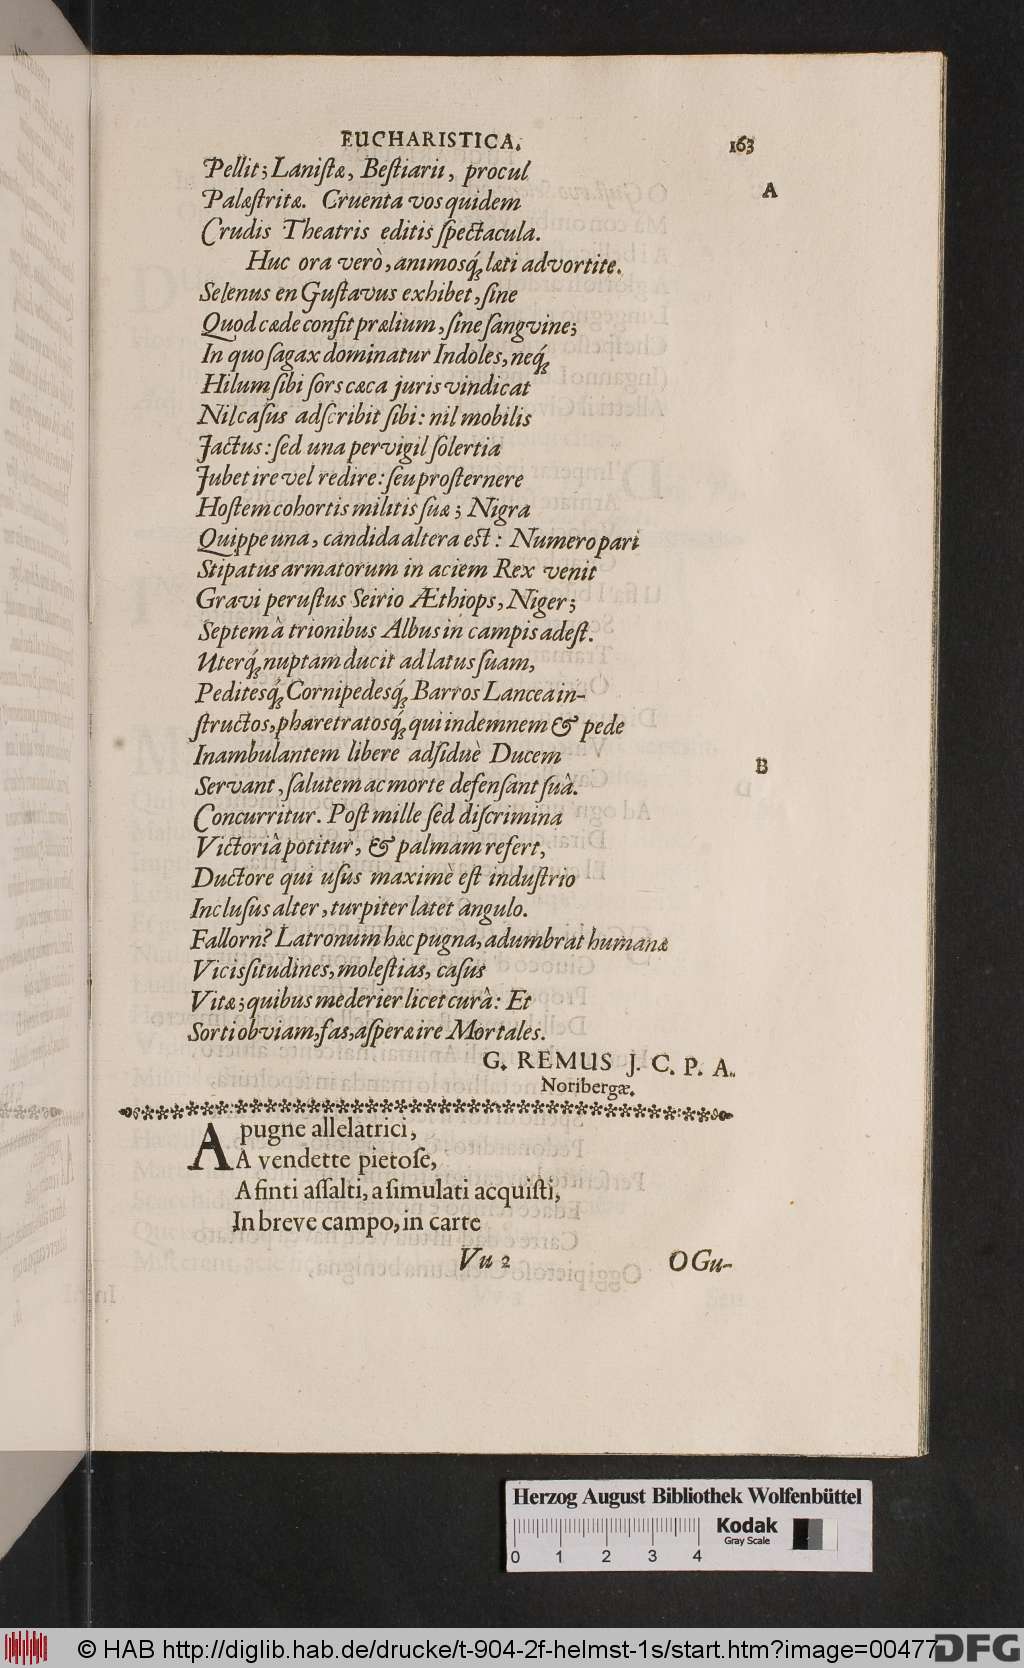 EUCHARISTICA. 163
Pellit; Laniſtæ, Beſtiarii, procul
A
Palæſtritæ. Cruenta vos quidem
Crudis Theatris editis ſpectacula.
Huc ora verò, animosq́; læti advortite.
Selenus en Guſtavus exhibet, ſine
Quod cæde confit prælium, ſine ſangvine;
In quo ſagax dominatur Indoles, neq́;
Hilum ſibi ſors cæca juris vindicat
Nil caſus adſcribit ſibi: nil mobilis
Jactus: ſed una pervigil ſolertia
Jubet ire vel redire: ſeu proſternere
Hoſtem cohortis militis ſuæ; Nigra
Quippe una, candida altera eſt: Numero pari
Stipatus armatorum in aciem Rex venit
Gravi peruſtus Seirio Æthiops, Niger;
Septem à trionibus Albus in campis adeſt.
Uterq́; nuptam ducit ad latus ſuam,
Peditesq́; Cornipedesq́; Barros Lancea in-
ſtructos, pharetratosq́; qui indemnem & pede
Inambulantem libere adſiduè Ducem
B
Servant, ſalutem ac morte defenſant ſuâ.
Concurritur. Poſt mille ſed diſcrimina
Victoriâ potitur, & palmam refert,
Ductore qui uſus maximè eſt induſtrio
Incluſus alter, turpiter latet angulo.
Fallorn? Latronum hæc pugna, adumbrat humanæ
Vicisſitudines, moleſtias, caſus
Vitæ; quibus mederier licet curâ: Et
Sorti obviam, fas, aſperæ ire Mortales.
G. REMUS J. C. P. A.
Noribergæ.
A pugne allelatrici,
A vendette pietoſe,
A finti aſſalti, a ſimulati acquiſti,
In breve campo, in carte
Vu 2 O Gu-
Herzog August Bibliothek Wolfenbüttel
Kodak
Gray Scale
0 1 2 3 4
© HAB http://diglib.hab.de/drucke/t-904-2f-helmst-1s/start.htm?image=00477
DFG